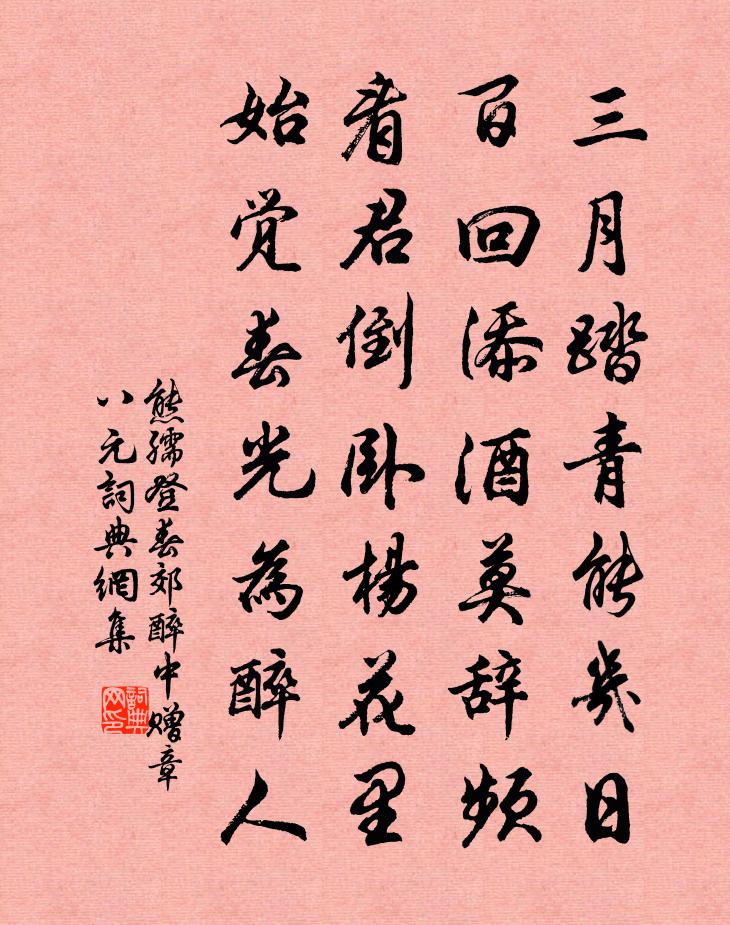 三月踏青能幾日
百回添酒莫辞频
看君倒卧楊花里
始觉春光為醉人
熊孺登春郊醉中赠章
八元詞典網集
詞典網印